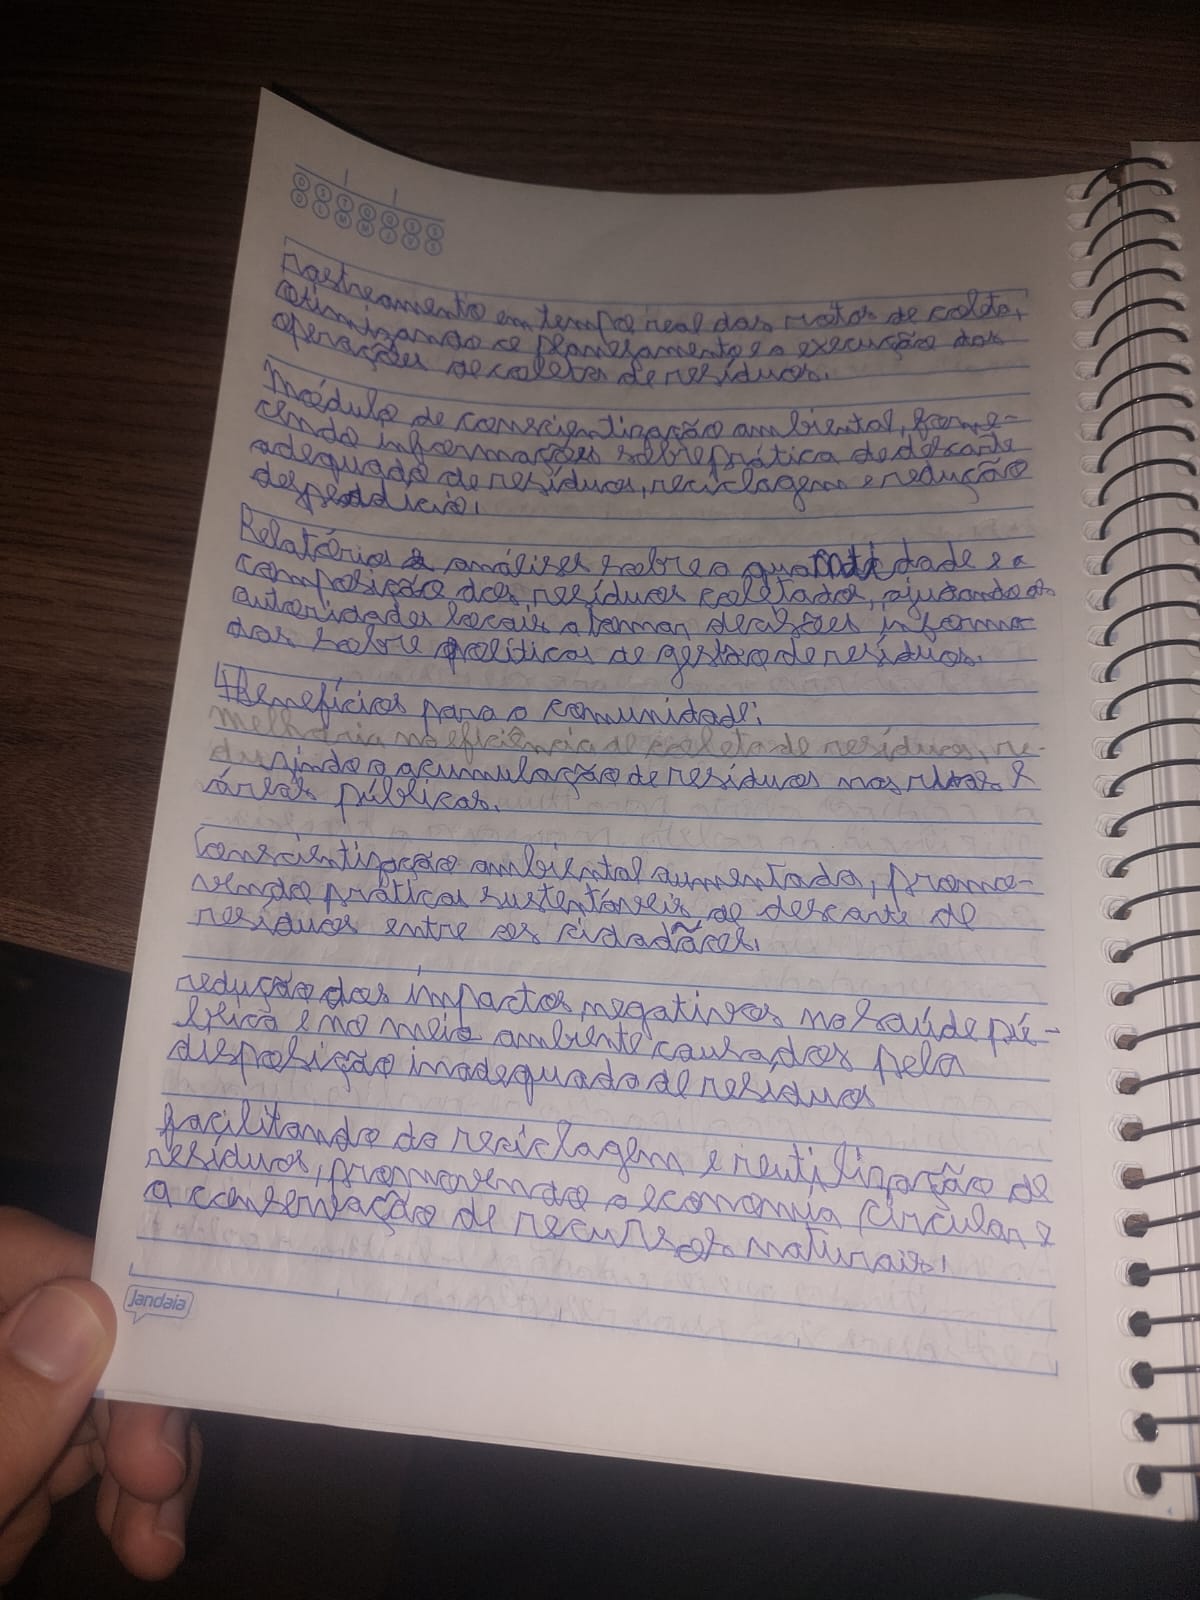 D S T Q Q S S
D L M M J V S
Rastreamento em tempo real das rotas de coleta,
otimizando o planejamento e a execução das
operações de coleta de resíduos.
Módulo de conscientização ambiental, forne-
cendo informações sobre prática de descarte
adequado de resíduos, reciclagem e redução
desperdício.
Relatórios e análises sobre a quantidade e a
composição dos resíduos coletados, ajudando as
autoridades locais a tomar decisões informa
das sobre políticas de gestão de resíduos.
4 Benefícios para a comunidade:
Melhoria na eficiência de coleta de resíduos, re-
duzindo a acumulação de resíduos nas ruas e
áreas públicas.
Conscientização ambiental aumentada, promo-
vendo práticas sustentáveis de descarte de
resíduos entre os cidadãos.
redução dos impactos negativos na saúde pú-
blica e no meio ambiente causados pela
disposição inadequada de resíduos
facilitando da reciclagem e reutilização de
resíduos, promovendo a economia circular e
a conservação de recursos naturais.
Jandaia